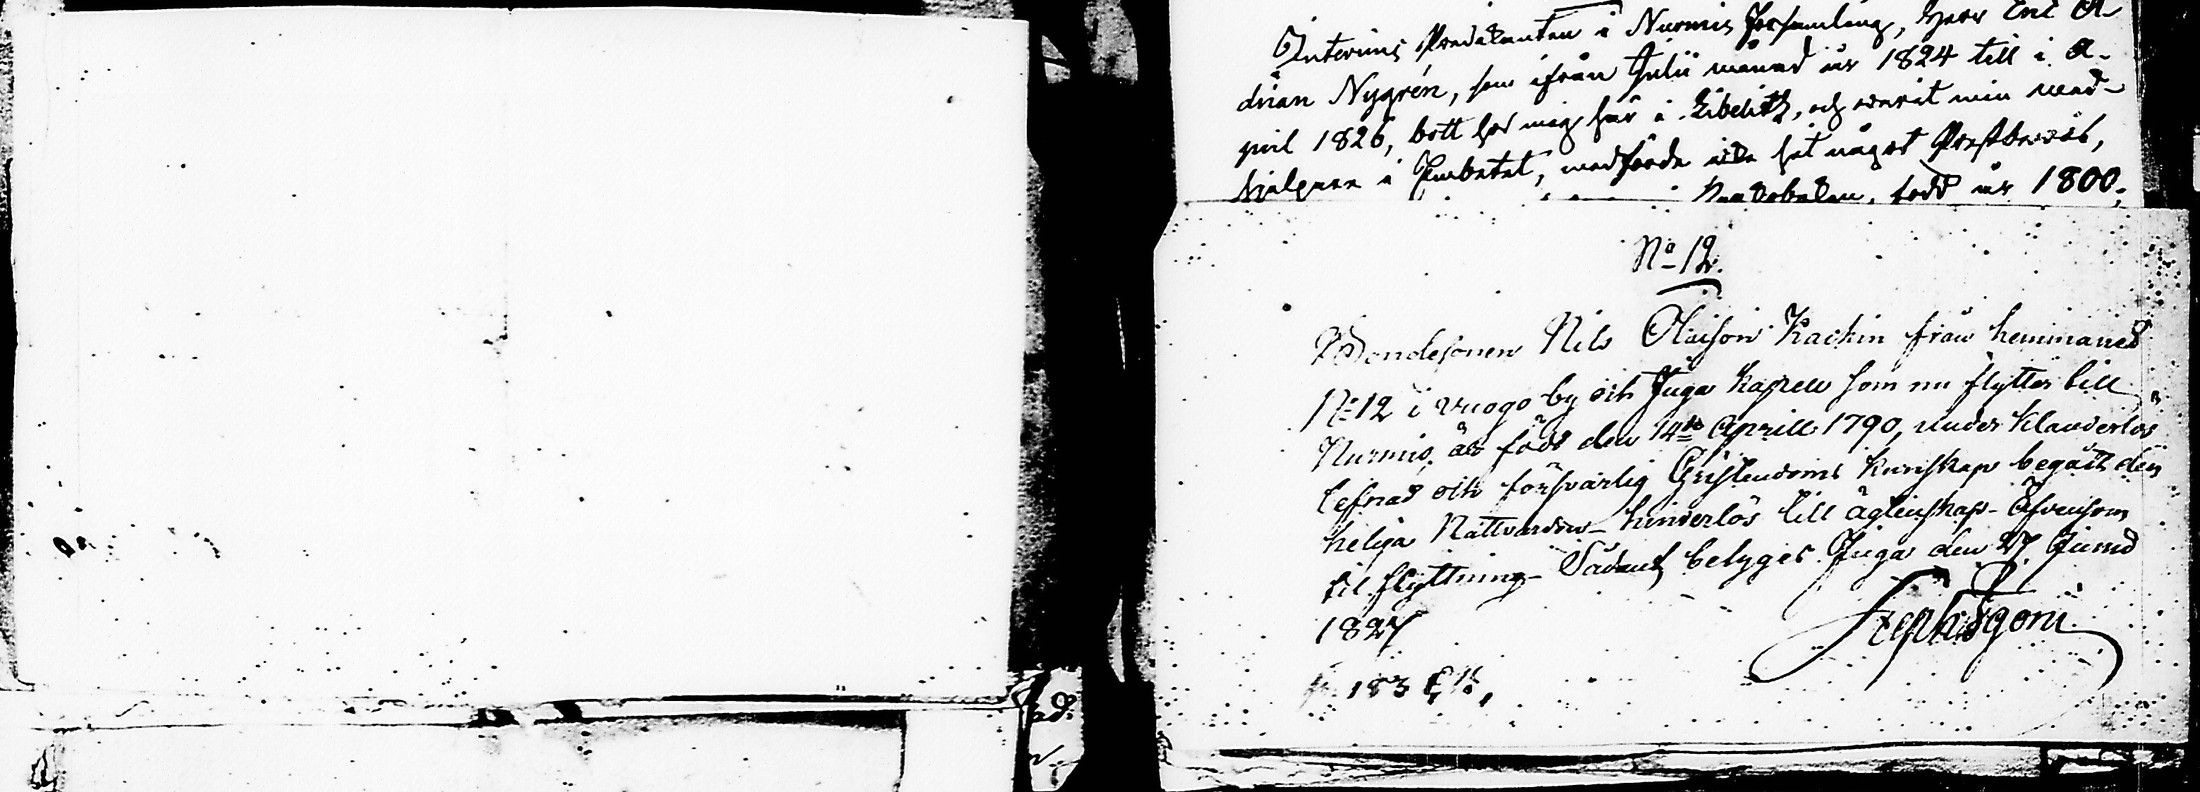 Interims Predikanten i Nurmis Församling, Herr Eric A-
drian Nygrén, som ifrån Julii månad år 1824 till i A-
pril 1826, bott hos mig här i Libelitz, och warit min med-
hjelpare i Embetet, medförde icke hit något Prestbewis,
född år 1800,
No 12.
Bondesonen Nils Olaison Kackin från hemmanet
No 12 i Vuogo by och Juga Kapell som nu flyttar till
Nurmis, är född den 14de Aprill 1790, under klanderlös
lefnad och försvarlig Christendoms kunskap begått den
heliga Nattvarden - hinderlös till ägtenskap - Äfvensom
til flyttning - Sådant betygas Juga den 27 Junii
1827
p. 183